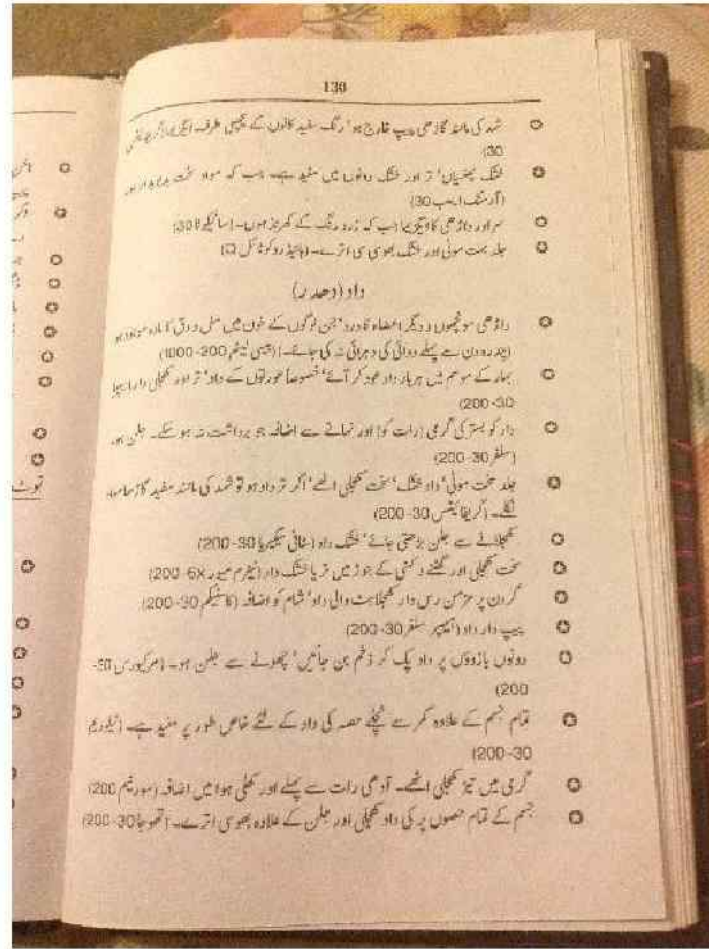 130
شہد کی مانند گاڑھی پیپ خارج ہو' رنگ سفید کانوں کے پچھلی طرف
30)
خشک پھنسیاں' تر اور خشک دونوں میں مفید ہے۔ جب کہ مواد سخت بدبودار ہو
(آرسنک ایلب 30)
سر اور داڑھی کا ایگزیما جب کہ زرد رنگ کے کھرنڈ ہوں۔ (سائیکوٹا 30)
جلد بہت موٹی اور خشک بھوسی سی اترے۔ (ہائیڈروکوٹائل Q)
داد (دھدر)
داڑھی مونچھوں و دیگر اعضاء کا درد' جن لوگوں کے خون میں سل و دق کا مادہ موجود ہو
(پندرہ دن سے پہلے دوائی کی دہرائی نہ کی جائے۔) (بیسی لینم 200-1000)
بہار کے موسم میں ہر بار داد عود کر آئے' خصوصاً عورتوں کے داد' تر اور کھجلی دار (سیپیا
30-200)
داد کو بستر کی گرمی (رات کو) اور نہانے سے اضافہ جو برداشت نہ ہو سکے۔ جلن ہو۔
(سلفر 30-200)
جلد سخت موٹی' داد خشک' سخت کھجلی اٹھے' اگر تر داد ہو تو شہد کی مانند سفید گاڑھا مواد
نکلے۔ (گریفائٹس 30-200)
کھجلانے سے جلن بڑھتی جائے' خشک داد (سانگیریا 30-200)
سخت کھجلی اور گھٹنے و کہنی کے جوڑ میں تر یا خشک داد (نیٹرم میور 6X-200)
گردن پر مزمن رس دار کھجلاہٹ والی داد' شام کو اضافہ (کاسٹیکم 30-200)
پیپ دار داد (ہیپر سلفر 30-200)
دونوں بازوؤں پر داد پک کر زخم بن جائیں' چھونے سے جلن ہو۔ (مرکیورس 30-
200)
تمام جسم کے علاوہ کمر سے نچلے حصہ کی داد کے لئے خاص طور پر مفید ہے۔ (ٹیلوریم
30-200)
گرمی میں تیز کھجلی اٹھے۔ آدھی رات سے پہلے اور کھلی ہوا میں اضافہ (سورینم 200)
جسم کے تمام حصوں پر کی داد کھجلی اور جلن کے علاوہ بھوسی اترے۔ (تھوجا 30-200)